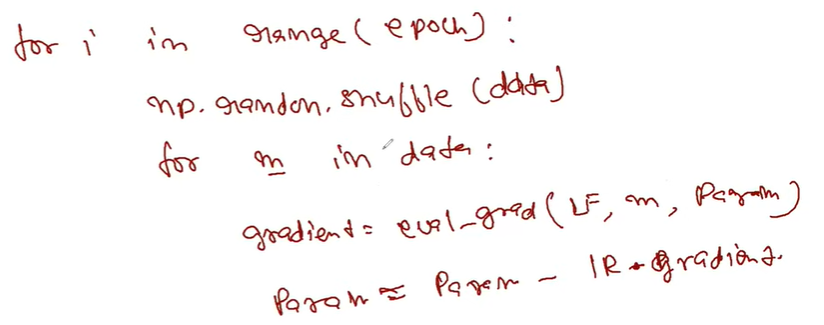 for i in range(epoch):
np.random.shuffle(data)
for m in data:
gradient = eval_grad(LF, m, Param)
Param = Param - lR * gradient.